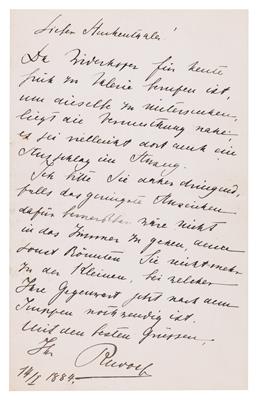 Lieber Heukenthaler!
Da Widerhofer für heute
früh zu Valerie berufen ist,
um dieselbe zu untersuchen,
liegt die Vermuthung nahe
es sei vielleicht dort auch ein
Ausschlag im Anzug.
Ich bitte Sie daher dringend,
falls das geringste Anzeichen
dafür bemerkbar wäre nicht
in das Zimmer zu gehen, denn
sonst könnten Sie nicht mehr
zu der Kleinen, bei welcher
Ihre Gegenwart jetzt nach dem
Impfen nothwendig ist.
Mit den besten Grüssen,
Ihr Rudolf
14/I 1884.